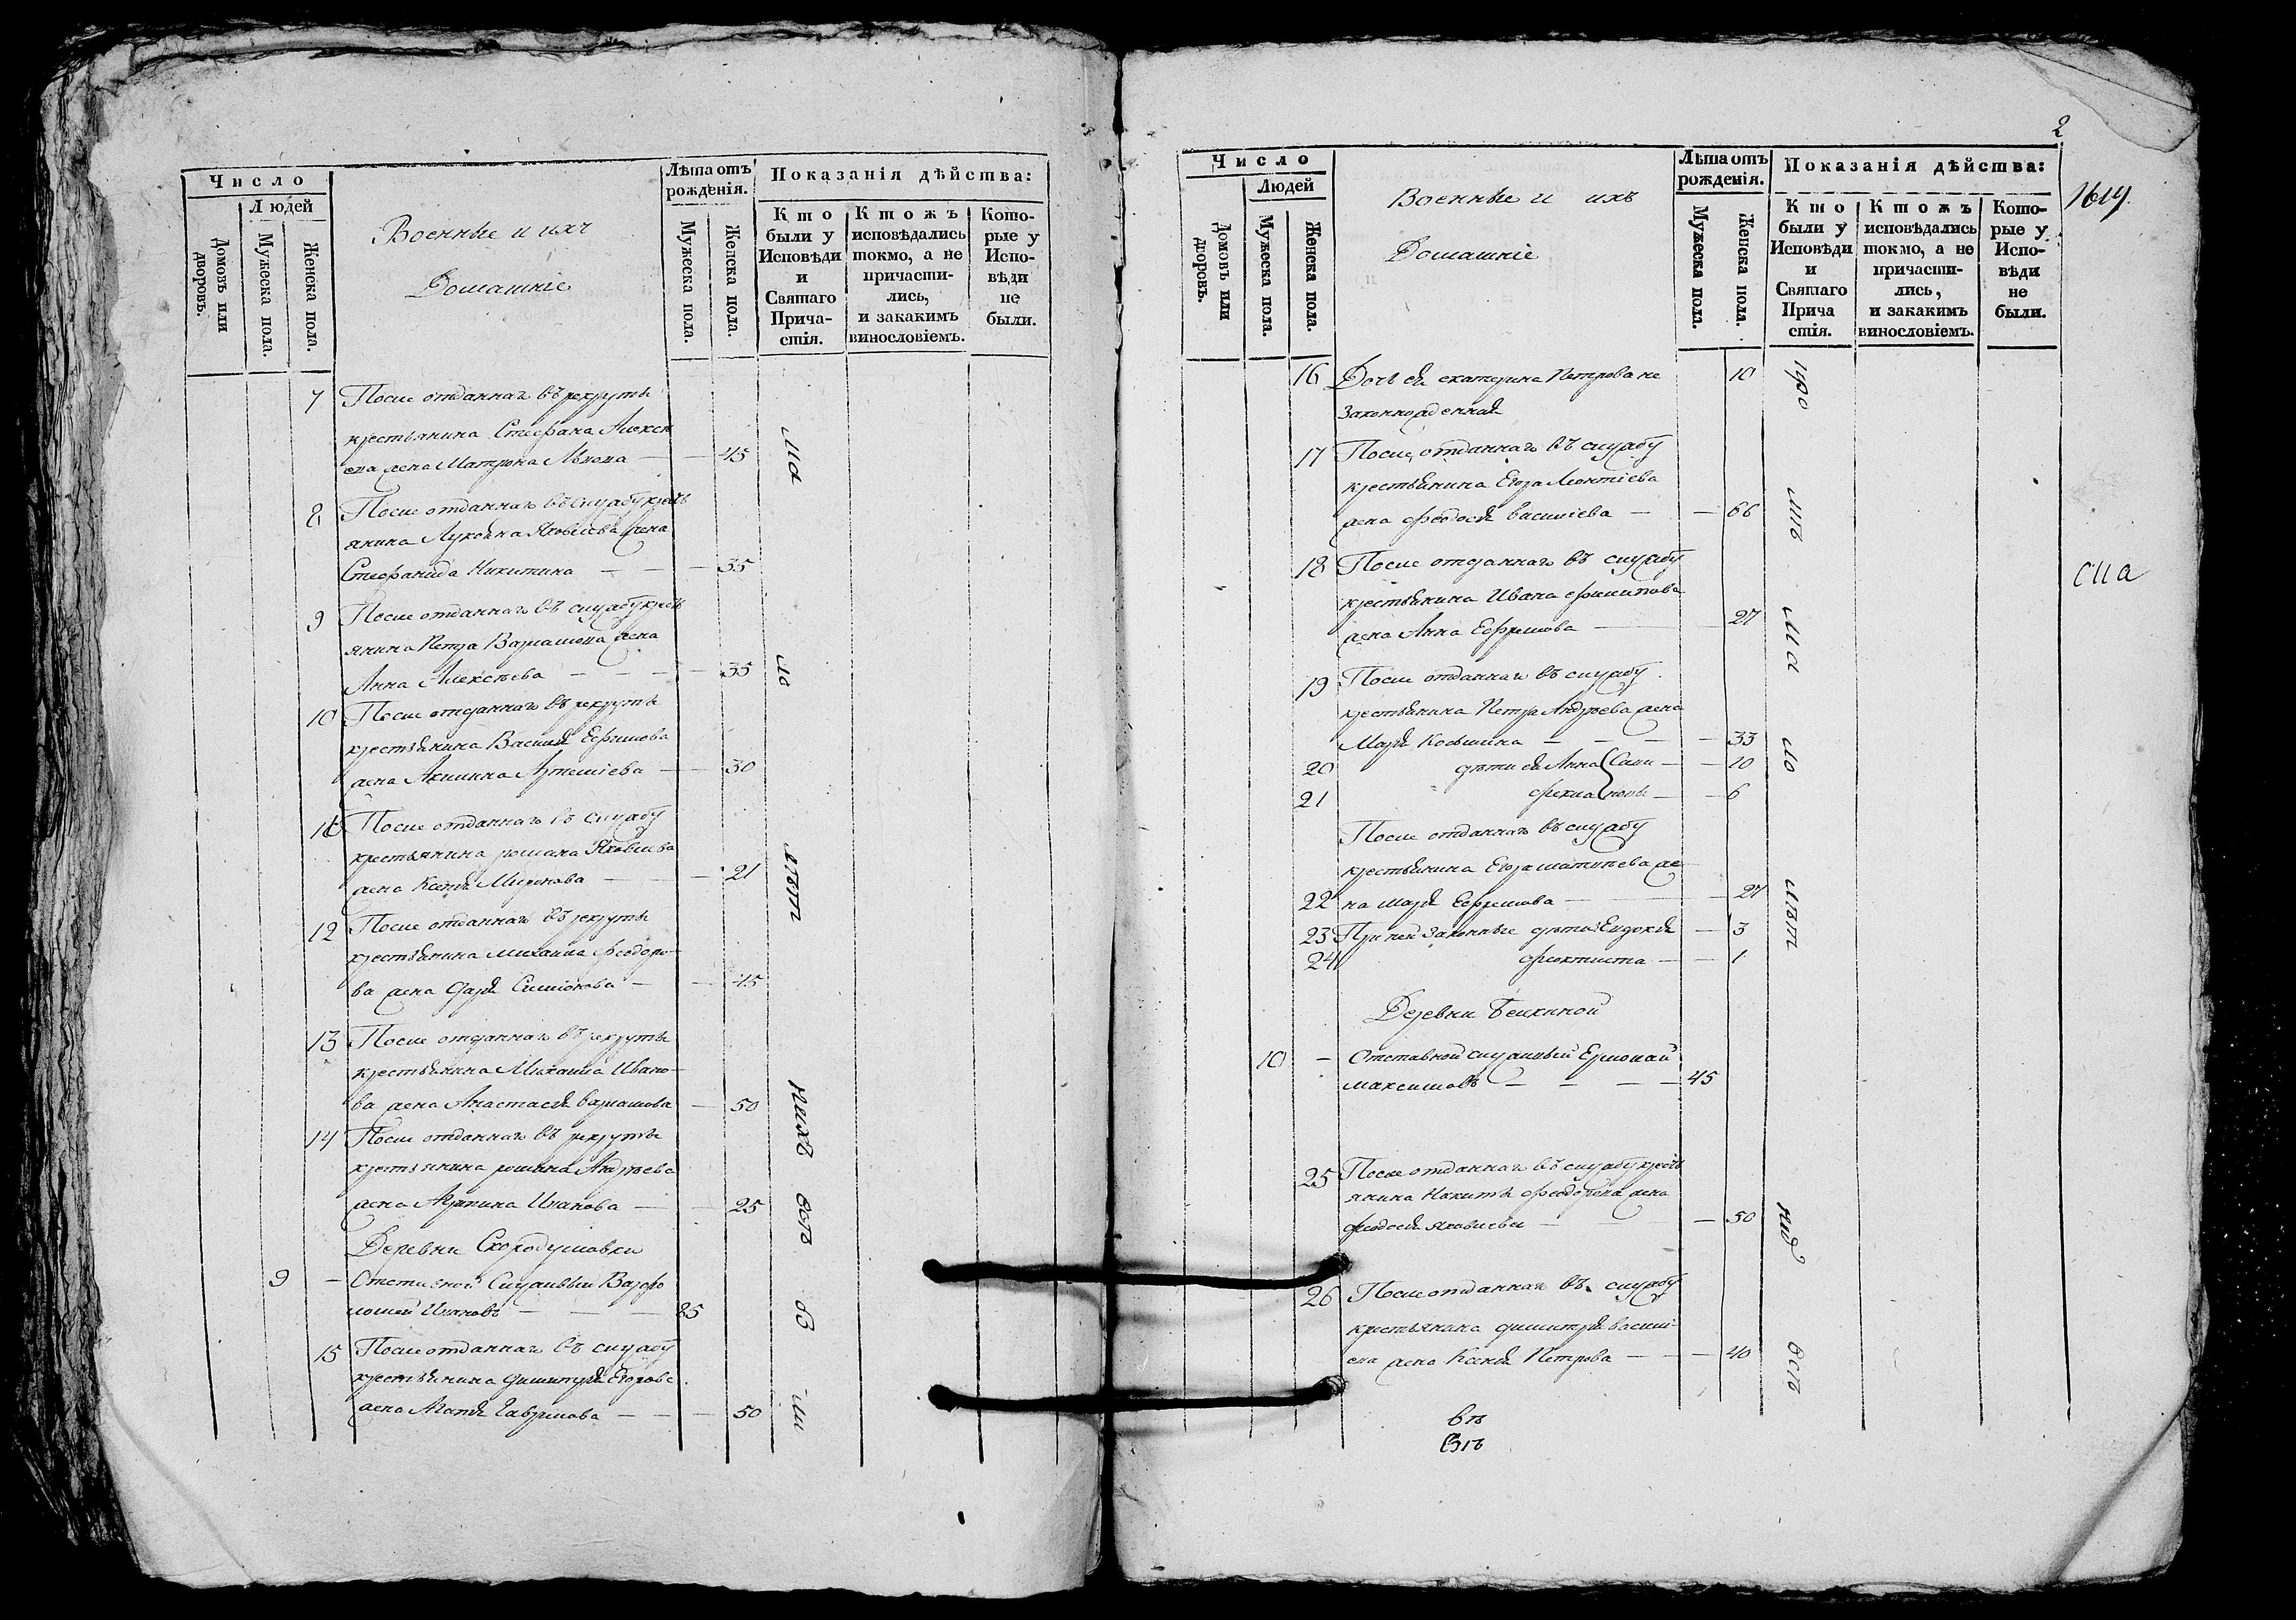 Число
Людей
Домовъ или дворовъ.
Мужеска пола.
Женска пола.
Военные и ихъ
Домашніе
Лѣта отъ рожденія.
Мужеска пола.
Женска пола.
Показанія дѣйства:
Кто были у Исповѣди и Святаго Прича-стія.
Ктожъ исповѣдались токмо, а не причасти-лись, и закакимъ винословіемъ.
Кото-рые у Испо-вѣди не были.
7 После отданнаго въ рекруты
крестьянина Стефана Алексѣ
ева жена Матрона Львова — 45
8 После отданнаго въ службу кресть
янина Лукіана Яковлева жена
Стефанида Никитина — — 35
9 После отданнаго въ службу кресть
янина Петра Варламова жена
Анна Алексѣева — — — 35
10 После отданнаго въ рекруты
крестьянина Василія Ефимова
жена Акилина Артемьева — 30
11 После отданнаго въ службу
крестьянина романа Яковлева
жена Ксенія Миронова — — 21
12 После отданнаго въ рекруты
крестьянина михаила феодоро-
ва жена Дарья Симіонова — 45
13 После отданнаго въ рекруты
крестьянина Михаила Ивано-
ва жена Анастасія варламова — 50
14 После отданнаго въ рекруты
крестьянина романа Андреева
жена Иванова — 25
Деревни Скородумовки
9 — Отставной Служивый Варфо
ломей Ивановъ — — — 85
15 После отданнаго въ службу
крестьянина димитрія Егорова
жена Гаврилова — — 50
2
1619.
Число
Людей
Домовъ или дворовъ.
Мужеска пола.
Женска пола.
Военные и ихъ
Домашніе
Лѣта отъ рожденія.
Мужеска пола.
Женска пола.
Показанія дѣйства:
Кто были у Исповѣди и Святаго Прича стія.
Ктожъ исповѣдались токмо, а не причасти-лись, и закакимъ винословіемъ.
Кото-рые у Испо-вѣди не были.
16 Дочь ея екатерина Петрова не 10
законнорожденная
17 После отданнаго въ службу
крестьянина Егора Леонтіева
жена феодосія василіева — — 66
18 После отданнаго въ службу
крестьянина Ивана филипова
жена Анна Ефремова — 27
19 После отданнаго въ службу
крестьянина Петра Андреева жена
Марія Козьмина — — — 33
20 дѣти ея Анна — 10
21 фекла — 6
После отданнаго въ службу
крестьянина Егора матвѣева же
22 на марія Ефремова — 27
23 При ней законные дѣти Евдокія — 3
24 феоктиста — 1
Деревни Белкиной
10 — Отставной служивый Ермолай
максимовъ — — — 45
25 После отданнаго въ службу кресть
янина Никиты феодорова жена
феодосія яковлева — — 50
26 После отданнаго въ службу
крестьянина димитрія васильи
ева жена Ксенія Петрова — — 40